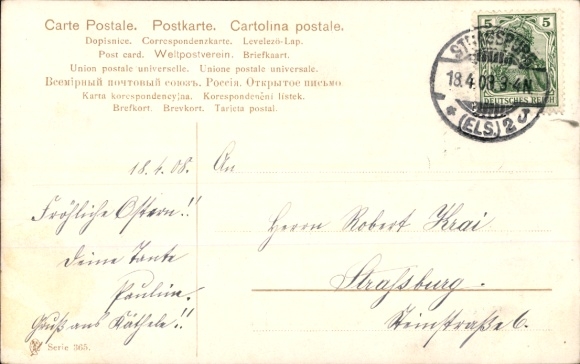 Carte Postale. Postkarte. Cartolina postale.
Dopisnice. Correspondenzkarte. Levelező-Lap.
Post card. Weltpostverein. Briefkaart.
Union postale universelle. Unione postale universale.
Всемірный почтовый союзъ. Россія. Открытое письмо
Karta korespondencyjna. Korespondenční lístek.
Brefkort. Brevkort. Tarjeta postal.
5 5
DEUTSCHES REICH
STRASSBURG
18.4.08.3-4N.
* (ELS.) 2 J
18.4.08.
Fröhliche Ostern!!
Deine Tante
Pauline.
Gruß aus Käthele!!
An
Herrn Robert Krai
Straßburg.
Steinstraße 6.
Serie 365.